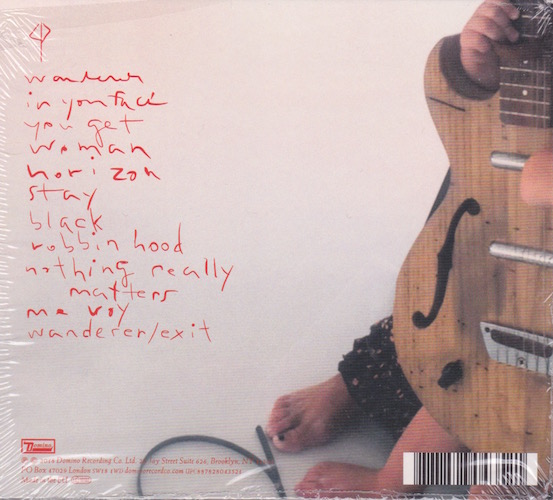 wanderer
in your face
you get
woman
horizon
stay
black
robbin hood
nothing really
matters
me voy
wanderer/exit
Domino
2018 Domino Recording Co. Ltd. Bay Street Suite 620, Brooklyn, N
PO Box 47029 London SW18 1WD dominorecordco.com